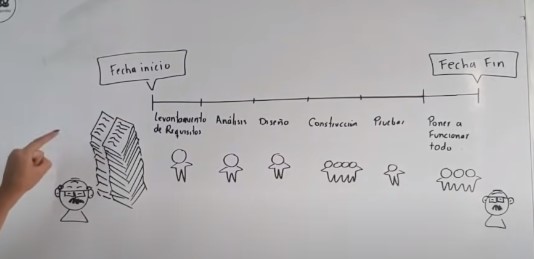 Fecha inicio
Fecha Fin
Levantamiento
de Requisitos
Análisis
Diseño
Construcción
Pruebas
Poner a
Funcionar
todo